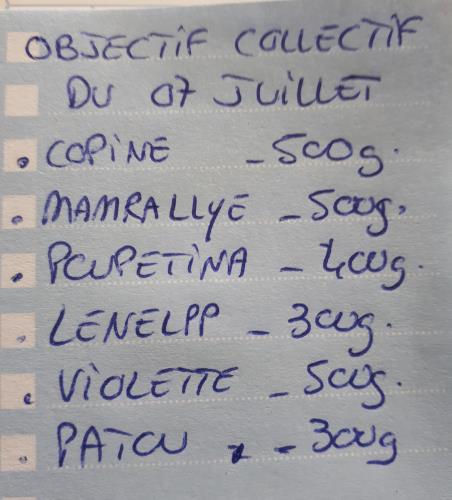 OBJECTIF COLLECTIF
DU 07 JUILLET
• COPINE - 500g.
• MAMRALLYE - 500g.
• POUPETINA - 400g.
• LENELPP - 300g.
• VIOLETTE - 500g.
• PATOU - 300g